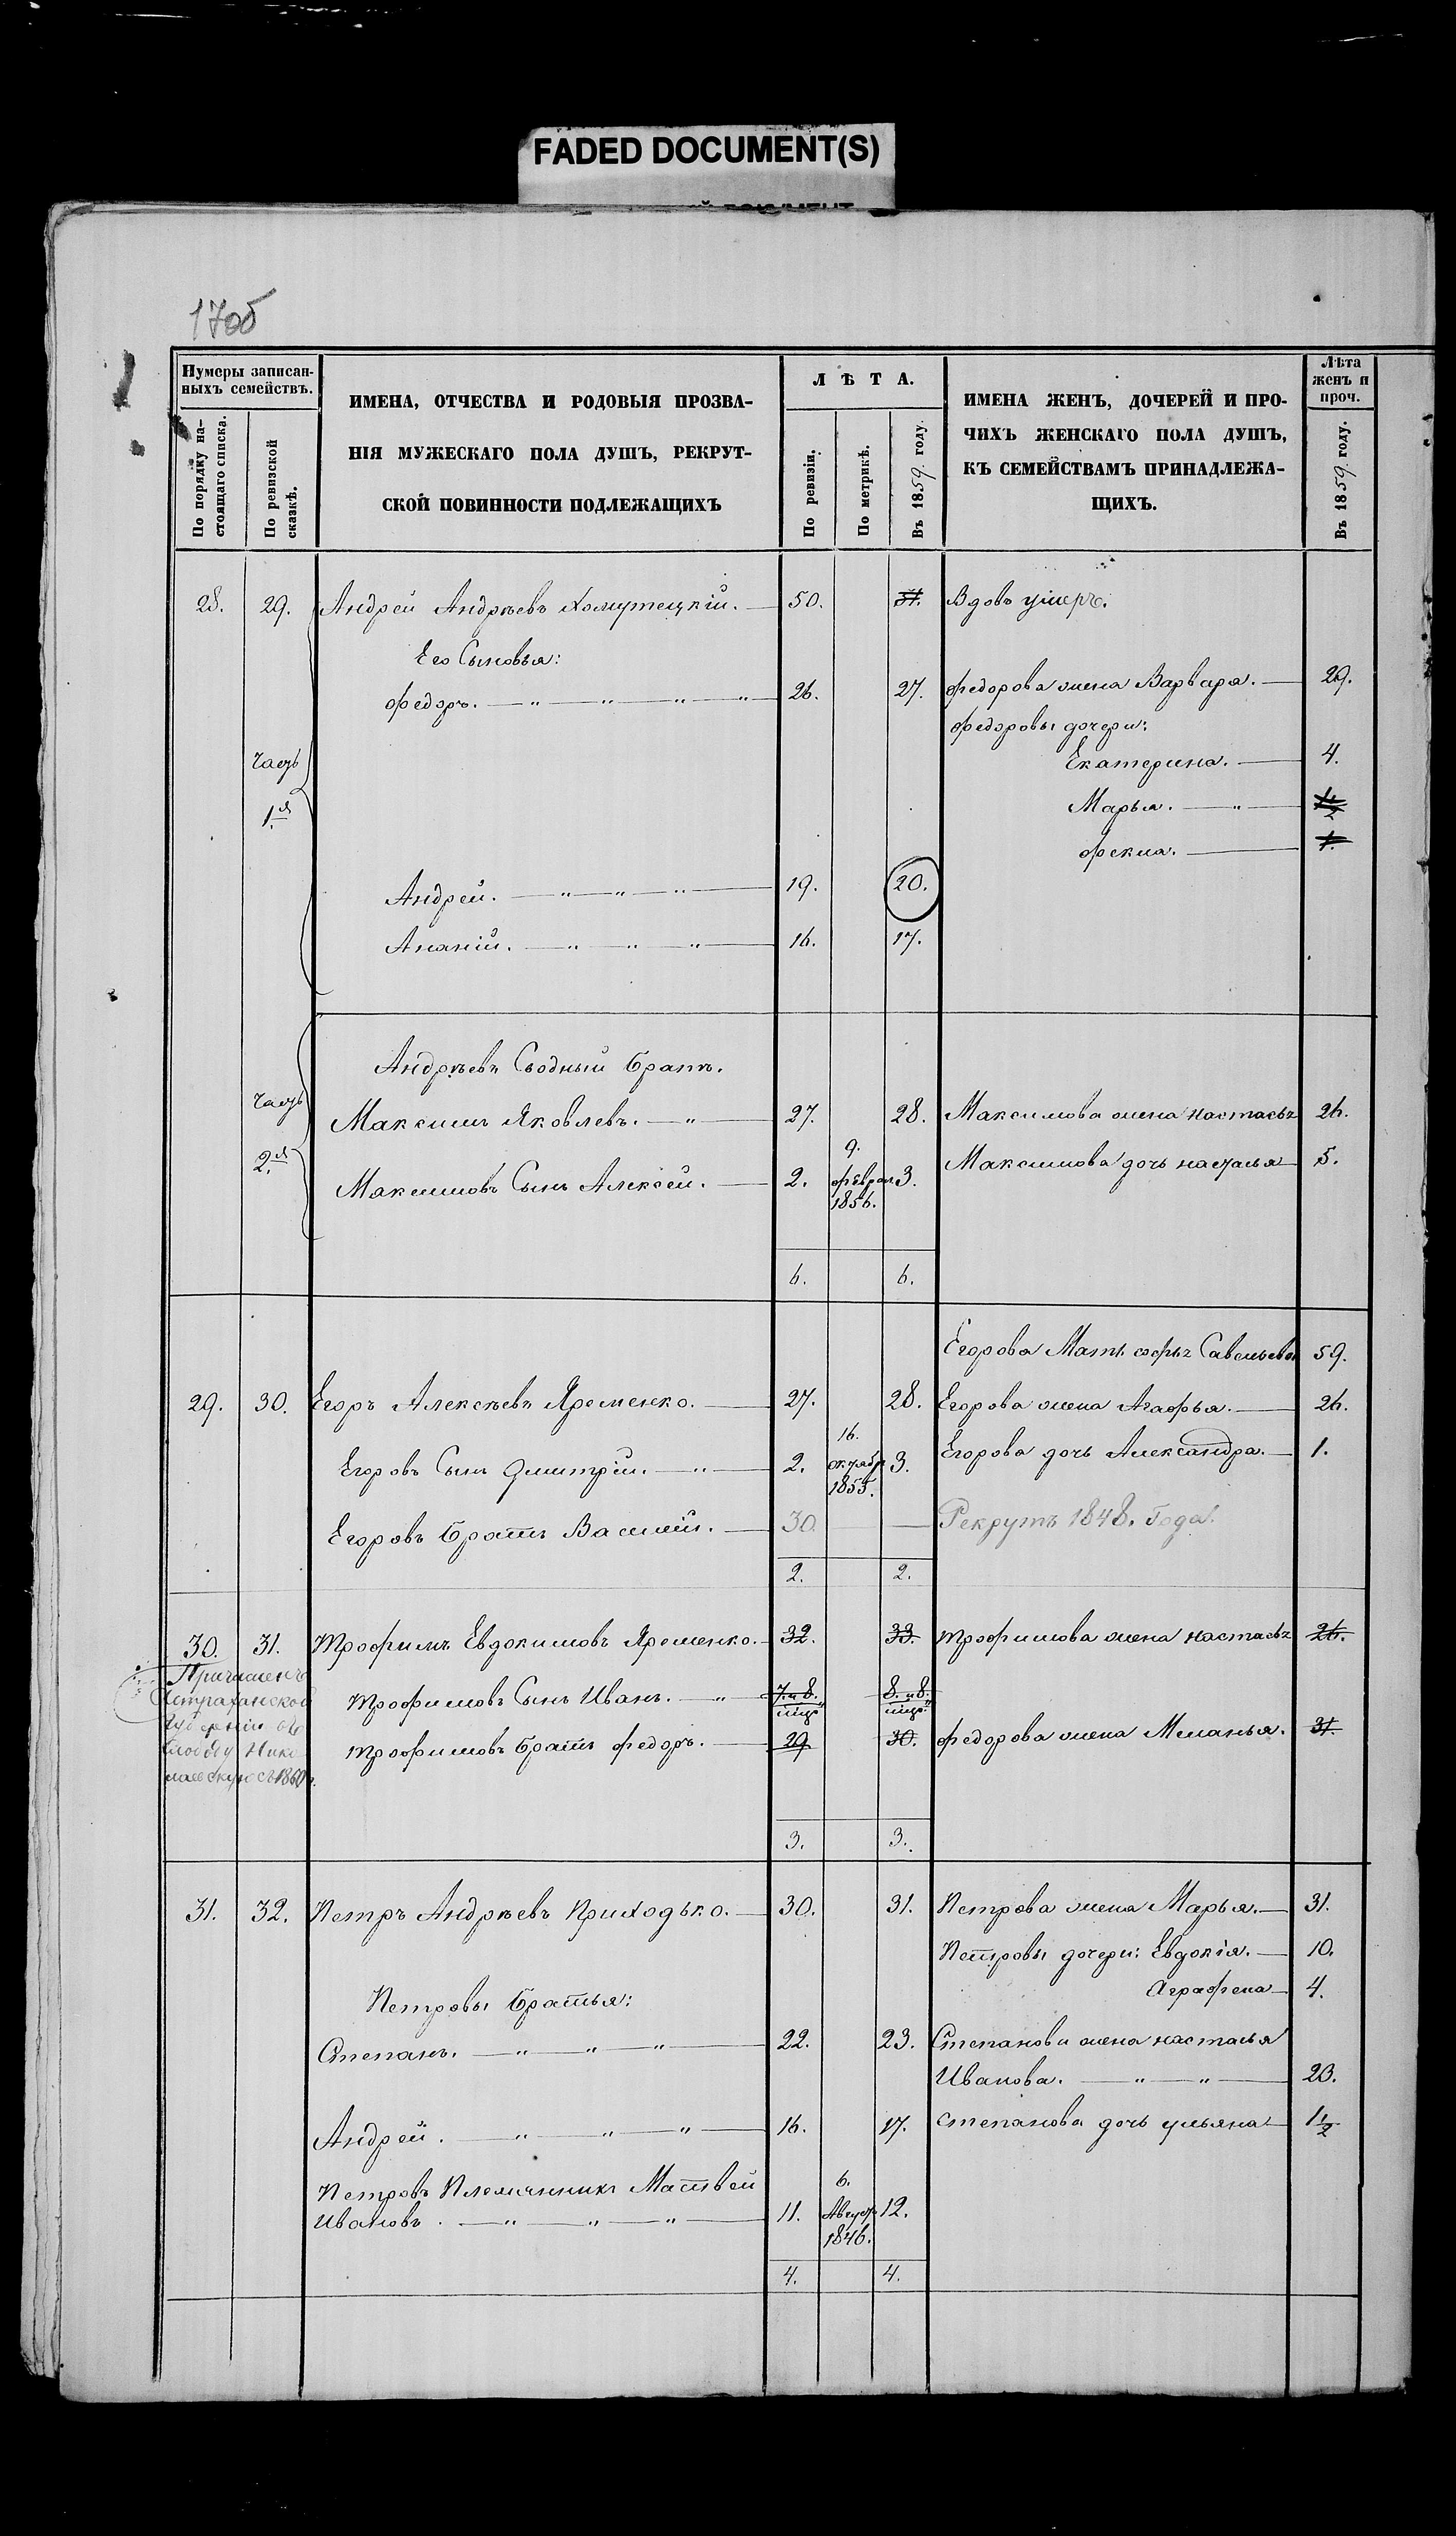 FADED DOCUMENT(S)
170об
Нумеры записан-
ныхъ семействъ.
По порядку на-
стоящаго списка.
По ревизской
сказкѣ.
ИМЕНА, ОТЧЕСТВА И РОДОВЫЯ ПРОЗВА-
НІЯ МУЖЕСКАГО ПОЛА ДУШЪ, РЕКРУТ-
СКОЙ ПОВИННОСТИ ПОДЛЕЖАЩИХЪ
ЛѢТА.
По ревизіи.
По метрикѣ.
Въ 1859 году.
ИМЕНА ЖЕНЪ, ДОЧЕРЕЙ И ПРО-
ЧИХЪ ЖЕНСКАГО ПОЛА ДУШЪ,
КЪ СЕМЕЙСТВАМЪ ПРИНАДЛЕЖА-
ЩИХЪ.
Лѣта
женъ и
проч.
Въ 1859 году.
28. 29. Андрей Андрѣевъ Хомутецкій. 50. 51. Вдовъ умеръ.
Его Сыновья:
Федоръ. 26. 27. Федорова жена Варвара. 29.
Федоровы дочери:
Часть Екатерина. 4.
1я Марья.
Фекла. 1.
Андрей. 19. 20.
Ананій. 16. 17.
Андрѣевъ Сводный братъ.
Часть Максимъ Яковлевъ. 27. 28. Максимова жена Настасья 26.
2я Максимовъ Сынъ Алексѣй. 2. 9. Феврал. 1856. 3. Максимова дочь Наталья 5.
6. 6.
Егорова Мать Софья Савельева 59.
29. 30. Егоръ Алексѣевъ Яременко. 27. 28. Егорова жена Агафья. 26.
Егоровъ Сынъ Дмитрій. 2. 16. октябр 1855. 3. Егорова дочь Александра. 1.
Егоровъ братъ Василій. 30. Рекрутъ 1848. Года.
2. 2.
30. 31. Трофимъ Евдокимовъ Яременко. 32. 33. Трофимова жена Настасья 26.
Причисленъ
Астраханской
Губерніи въ
слободу Нико
лаевскую съ 1860 г.
Трофимовъ Сынъ Иванъ. 7. и 8. мцр. 8. и 8. мцр.
Трофимовъ братъ Федоръ. 29 30. Федорова жена Меланья. 31.
3. 3.
31. 32. Петръ Андрѣевъ Приходько. 30. 31. Петрова жена Марья. 31.
Петровы дочери: Евдокія. 10.
Аграфена 4.
Петровы братья:
Степанъ. 22. 23. Степанова жена Настасья
Иванова. 23.
Андрей. 16. 17. Степанова дочь Ульяна 1½
Петровъ Племянникъ Матвей
Ивановъ. 11. 6. Август 1846. 12.
4. 4.